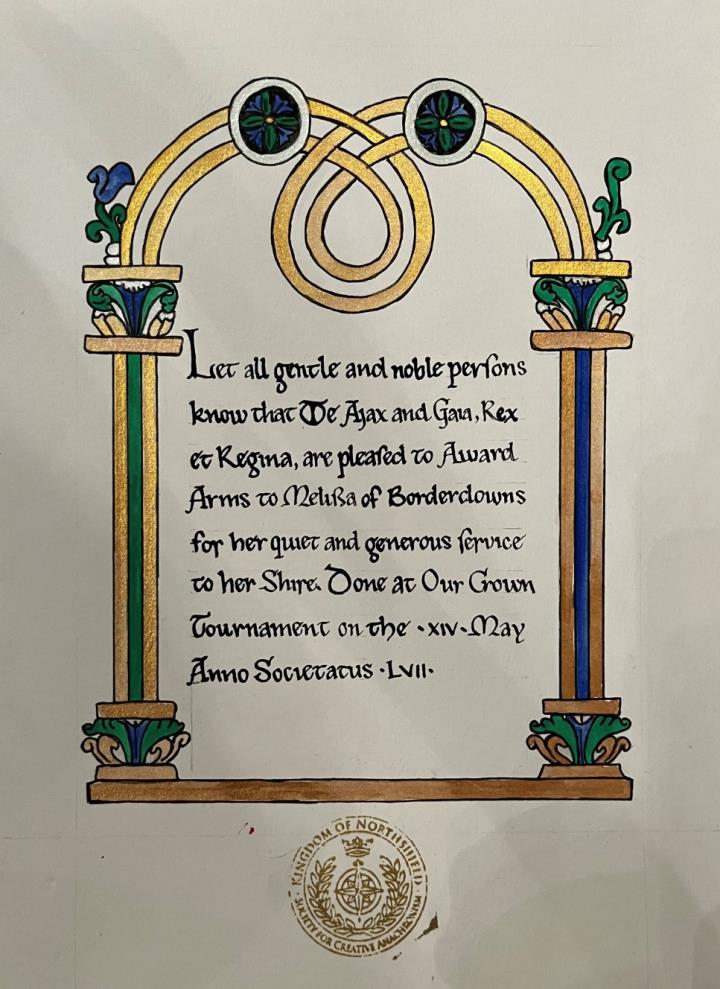 Let all gentle and noble perſons
know that We Ajax and Gaia, Rex
et Regina, are pleaſed to Award
Arms to Meliſsa of Borderdowns
for her quiet and generous ſervice
to her Shire. Done at Our Crown
Tournament on the ·xiv· May
Anno Societatus ·LVII·
KINGDOM OF NORTHSHIELD
SOCIETY FOR CREATIVE ANACHRONISM